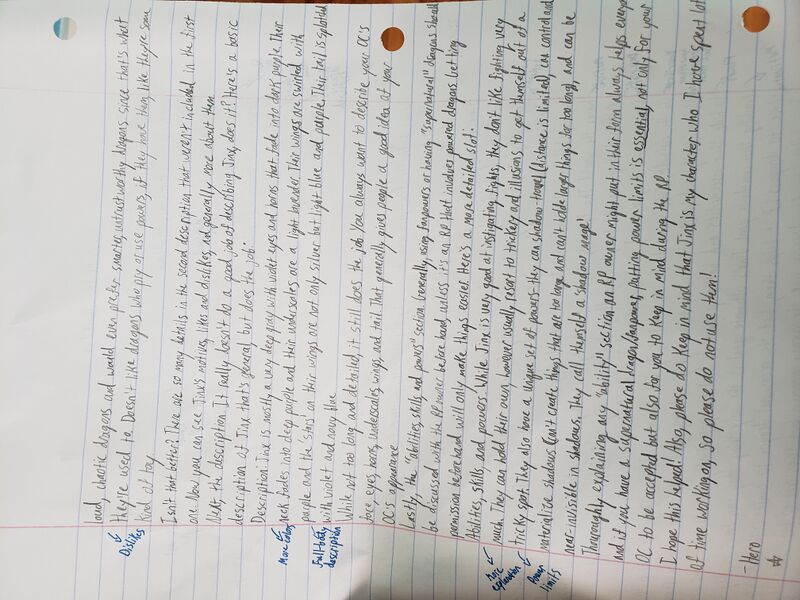 loud, chaotic dragons and would ever prefer smarter, untrustworthy dragons since that's what
they're used to. Doesn't like dragons who pry or use powers, if they have them, like they're some
kind of toy.
↓ Dislikes
Isn't that better? There are so many details in the second description that weren't included in the first
one. Now you can see Jink's motives, likes and dislikes, and generally more about them.
Next, the description. It really doesn't do a good job at describing Jinx, does it? Here's a basic
description of Jinx that's general but does the job:
Description: Jinx is mostly a very deep gray with violet eyes and horns that fade into dark purple. Their
neck fades into deep purple and their underscales are a light lavender. Their wings are swirled with
purple and the 'stars' on their wings are not only silver but light blue and purple. Their tail is splotched
with violet and navy blue.
↓ more colors
Full-body description
While not too long and detailed, it still does the job. You always want to describe your OC's
face, eyes, horns, underscales, wings, and tail. That generally gives people a good idea at your
OC's appearance
Lastly, the "abilities, skills, and powers" section. Generally, using fanpowers or having "supernatural" dragons should
be discussed with the RP owner before hand, unless it's an RP that involves powered dragons. Getting
permission beforehand will only make things easier. Here's a more detailed slot:
Abilities, skills and powers: While Jinx is very good at instigating fights, they don't like fighting very
much. They can hold their own, however usually resort to trickery and illusions to get themself out of a
tricky spot. They also have a unique set of powers- they can shadow-travel (distance is limited), can control and
materialize shadows (can't create things that are too large and can't hold larger things for too long), and can be
near-invisible in shadows. They call themself a 'shadow mage'.
↓ more explanation
↓ Power limits
Thoroughly explaining any "ability" section an RP owner might put in their form always helps,
and if you have a supernatural dragon/fanpower, putting power limits is essential, not only for your
OC to be accepted but also for you to keep in mind during the RP.
I hope this helped! Also, please do keep in mind that Jinx is my character, who I have spent lots
of time working on, so please do not use them!
-Hero